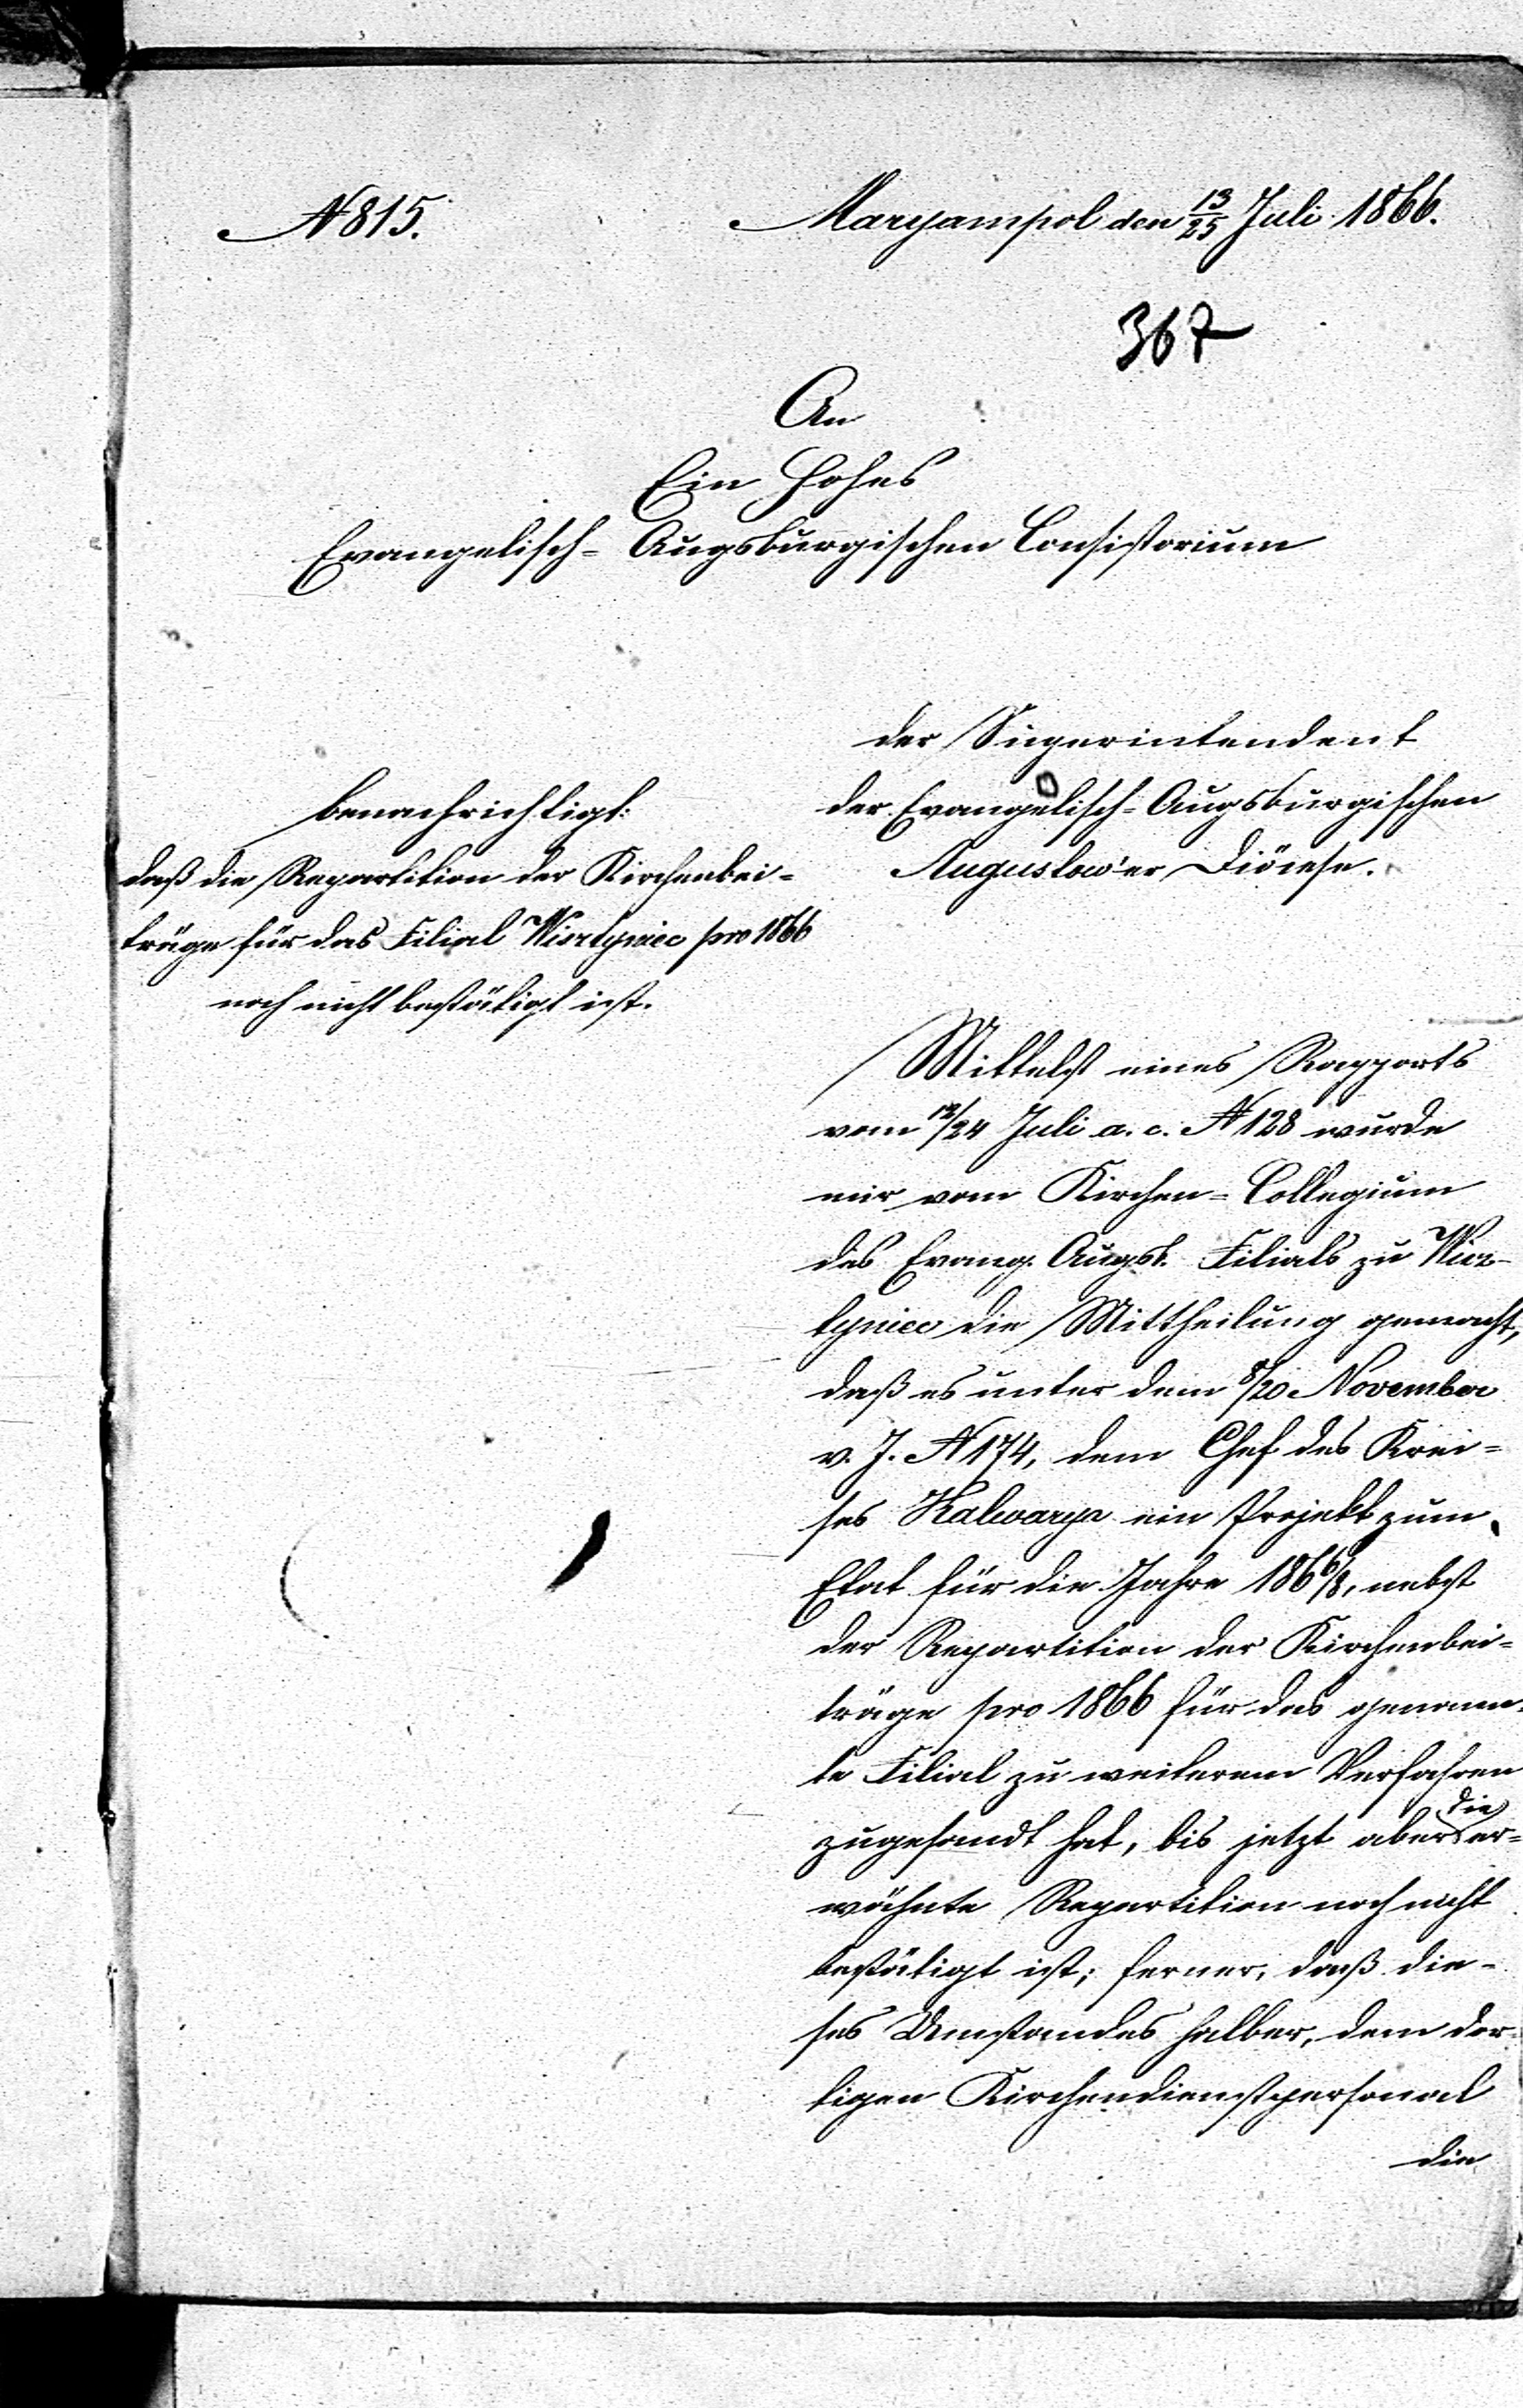 N 815.
Maryampol den 13/25 Juli 1866.
367
An
Ein Hohes
Evangelisch-Augsburgischen Consistorium
der Superintendent
der Evangelisch-Augsburgischen
Augustow'er Diöcese.
benachrichtigt:
daß die Repartition der Kirchenbei-
träge für das Filial Wisztyniec pro 1866
noch nicht bestätigt ist.
Mittelst eines Rapports
vom 12/24 Juli a. c. N 128 wurde
mir vom Kirchen-Collegium
des Evang. Augsb. Filials zu Wisz-
tyniec die Mittheilung gemacht,
daß es unter dem 8/20 November
v. J. N 174, dem Chef des Krei-
ses Kalwarya ein Projekt zum
Etat für die Jahre 1866/8, nebst
der Repartition der Kirchenbei-
träge pro 1866 für das genann-
te Filial zu weiterem Verfahren
zugesandt hat, bis jetzt aber die er-
wähnte Repartition noch nicht
bestätigt ist; ferner, daß die-
ses Umstandes halber, dem dor-
tigen Kirchendienstpersonal
die